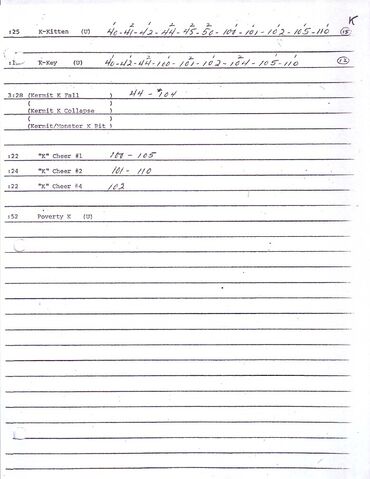 K
:25 K-Kitten (U) 40-41-42-44-45-50-100-101-102-105-110
K-Key (U) 40-42-44-100-101-102-104-105-110 (12)
3:28 (Kermit K Fall ) 44 - 104
( )
(Kermit K Collapse )
( )
(Kermit/Monster K Bit )
:22 "K" Cheer #1 100 - 105
:24 "K" Cheer #2 101 - 110
:22 "K" Cheer #4 102
:52 Poverty K (U)